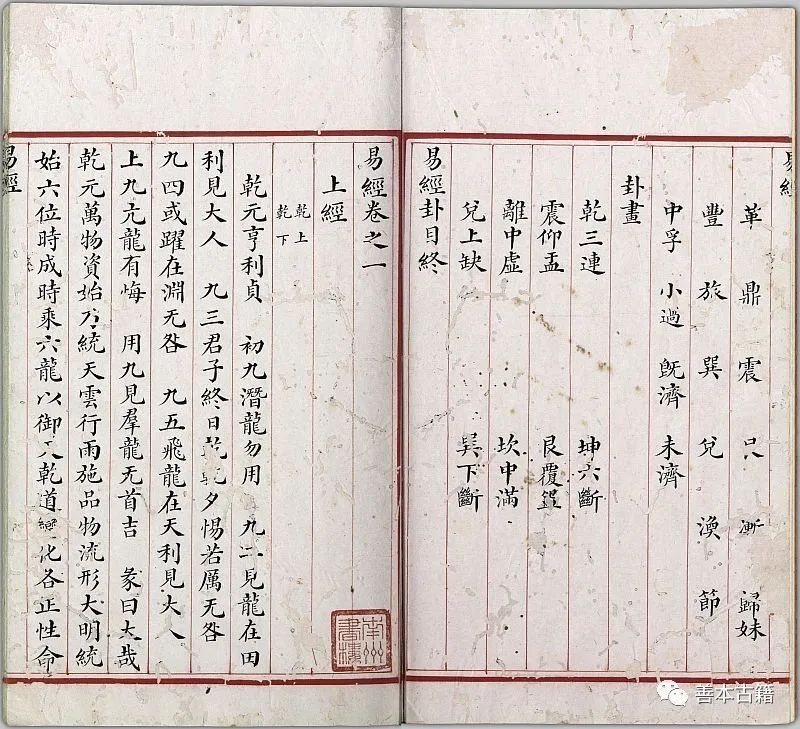 易經
革 鼎 震 艮 漸 歸妹
豐 旅 巽 兌 渙 節
中孚 小過 旣濟 未濟
卦畫
乾三連 坤六斷
震仰盂 艮覆盌
離中虛 坎中滿
兌上缺 巽下斷
易經卦目終
易經卷之一
上經
乾上
乾下
乾元亨利貞 初九潛龍勿用 九二見龍在田
利見大人 九三君子終日乾乾夕惕若厲无咎
九四或躍在淵无咎 九五飛龍在天利見大人
上九亢龍有悔 用九見羣龍无首吉 彖曰大哉
乾元萬物資始乃統天雲行雨施品物流形大明終
始六位時成時乘六龍以御天乾道變化各正性命
易經
南州書樓
善本古籍